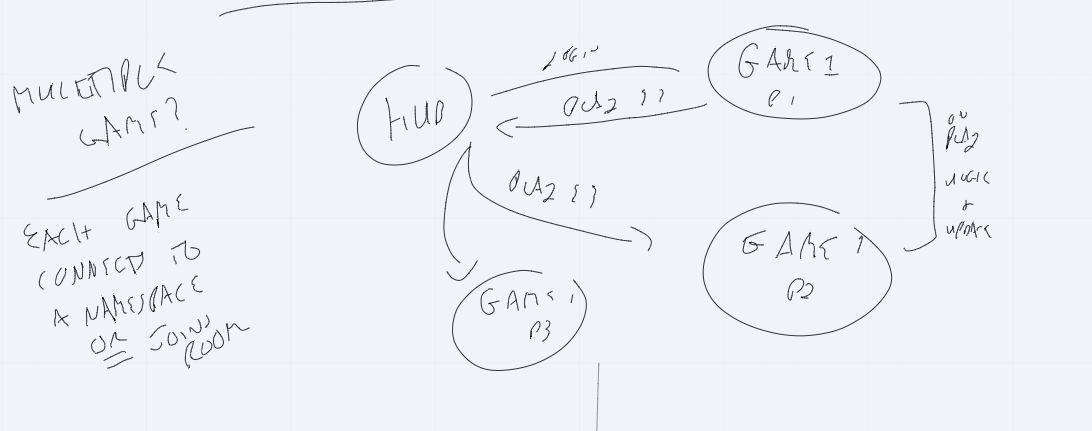 MULTIPLE
GAMES?
EACH GAME
CONNECTED TO
A NAMESPACE
OR JOINS
ROOM
HUB
LOGIN
GAME 1
P1
GAME 1
P2
GAME 1
P3
LOGIC
+
UPDATE